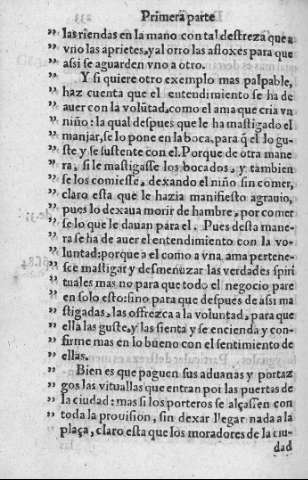 Primera parte
" las riendas en la mano con tal destreza que a
" vno las aprietes, y al otro las afloxes para que
" assi se aguarden vno a otro.
" Y si quiere otro exemplo mas palpable,
" haz cuenta que el entendimiento se ha de
" auer con la volūtad, como el ama que cria vn
" niño: la qual despues que le ha mastigado el
" manjar, se lo pone en la boca, para q̄ el lo gu-
" ste y se sustente con el. Porque de otra mane
" ra, si le mastigasse los bocados, y tambien
" se los comiesse, dexando el niño sin comer,
" claro esta que le hazia manifiesto agrauio,
" pues lo dexaua morir de hambre, por comer
" se lo que le dauan para el. Pues desta mane-
" ra se ha de auer el entendimiento con la vo-
" luntad: porque a el como a vna ama pertene-
" sce mastigar y desmenuzar las verdades spiri
" tuales mas no para que todo el negocio pare
" en solo esto: sino para que después de assi ma
" stigadas, las ofrezca a la voluntad, para que
" ella las guste, y las sienta y se encienda y con-
" firme mas en lo bueno con el sentimiento de
" ellas.
" Bien es que paguen sus aduanas y portaz
" gos las vituallas que entran por las puertas de
" la ciudad: mas si los porteros se alçassen con
" toda la prouision, sin dexar llegar nada a la
" plaça, claro esta que los moradores de la ciu-
dad